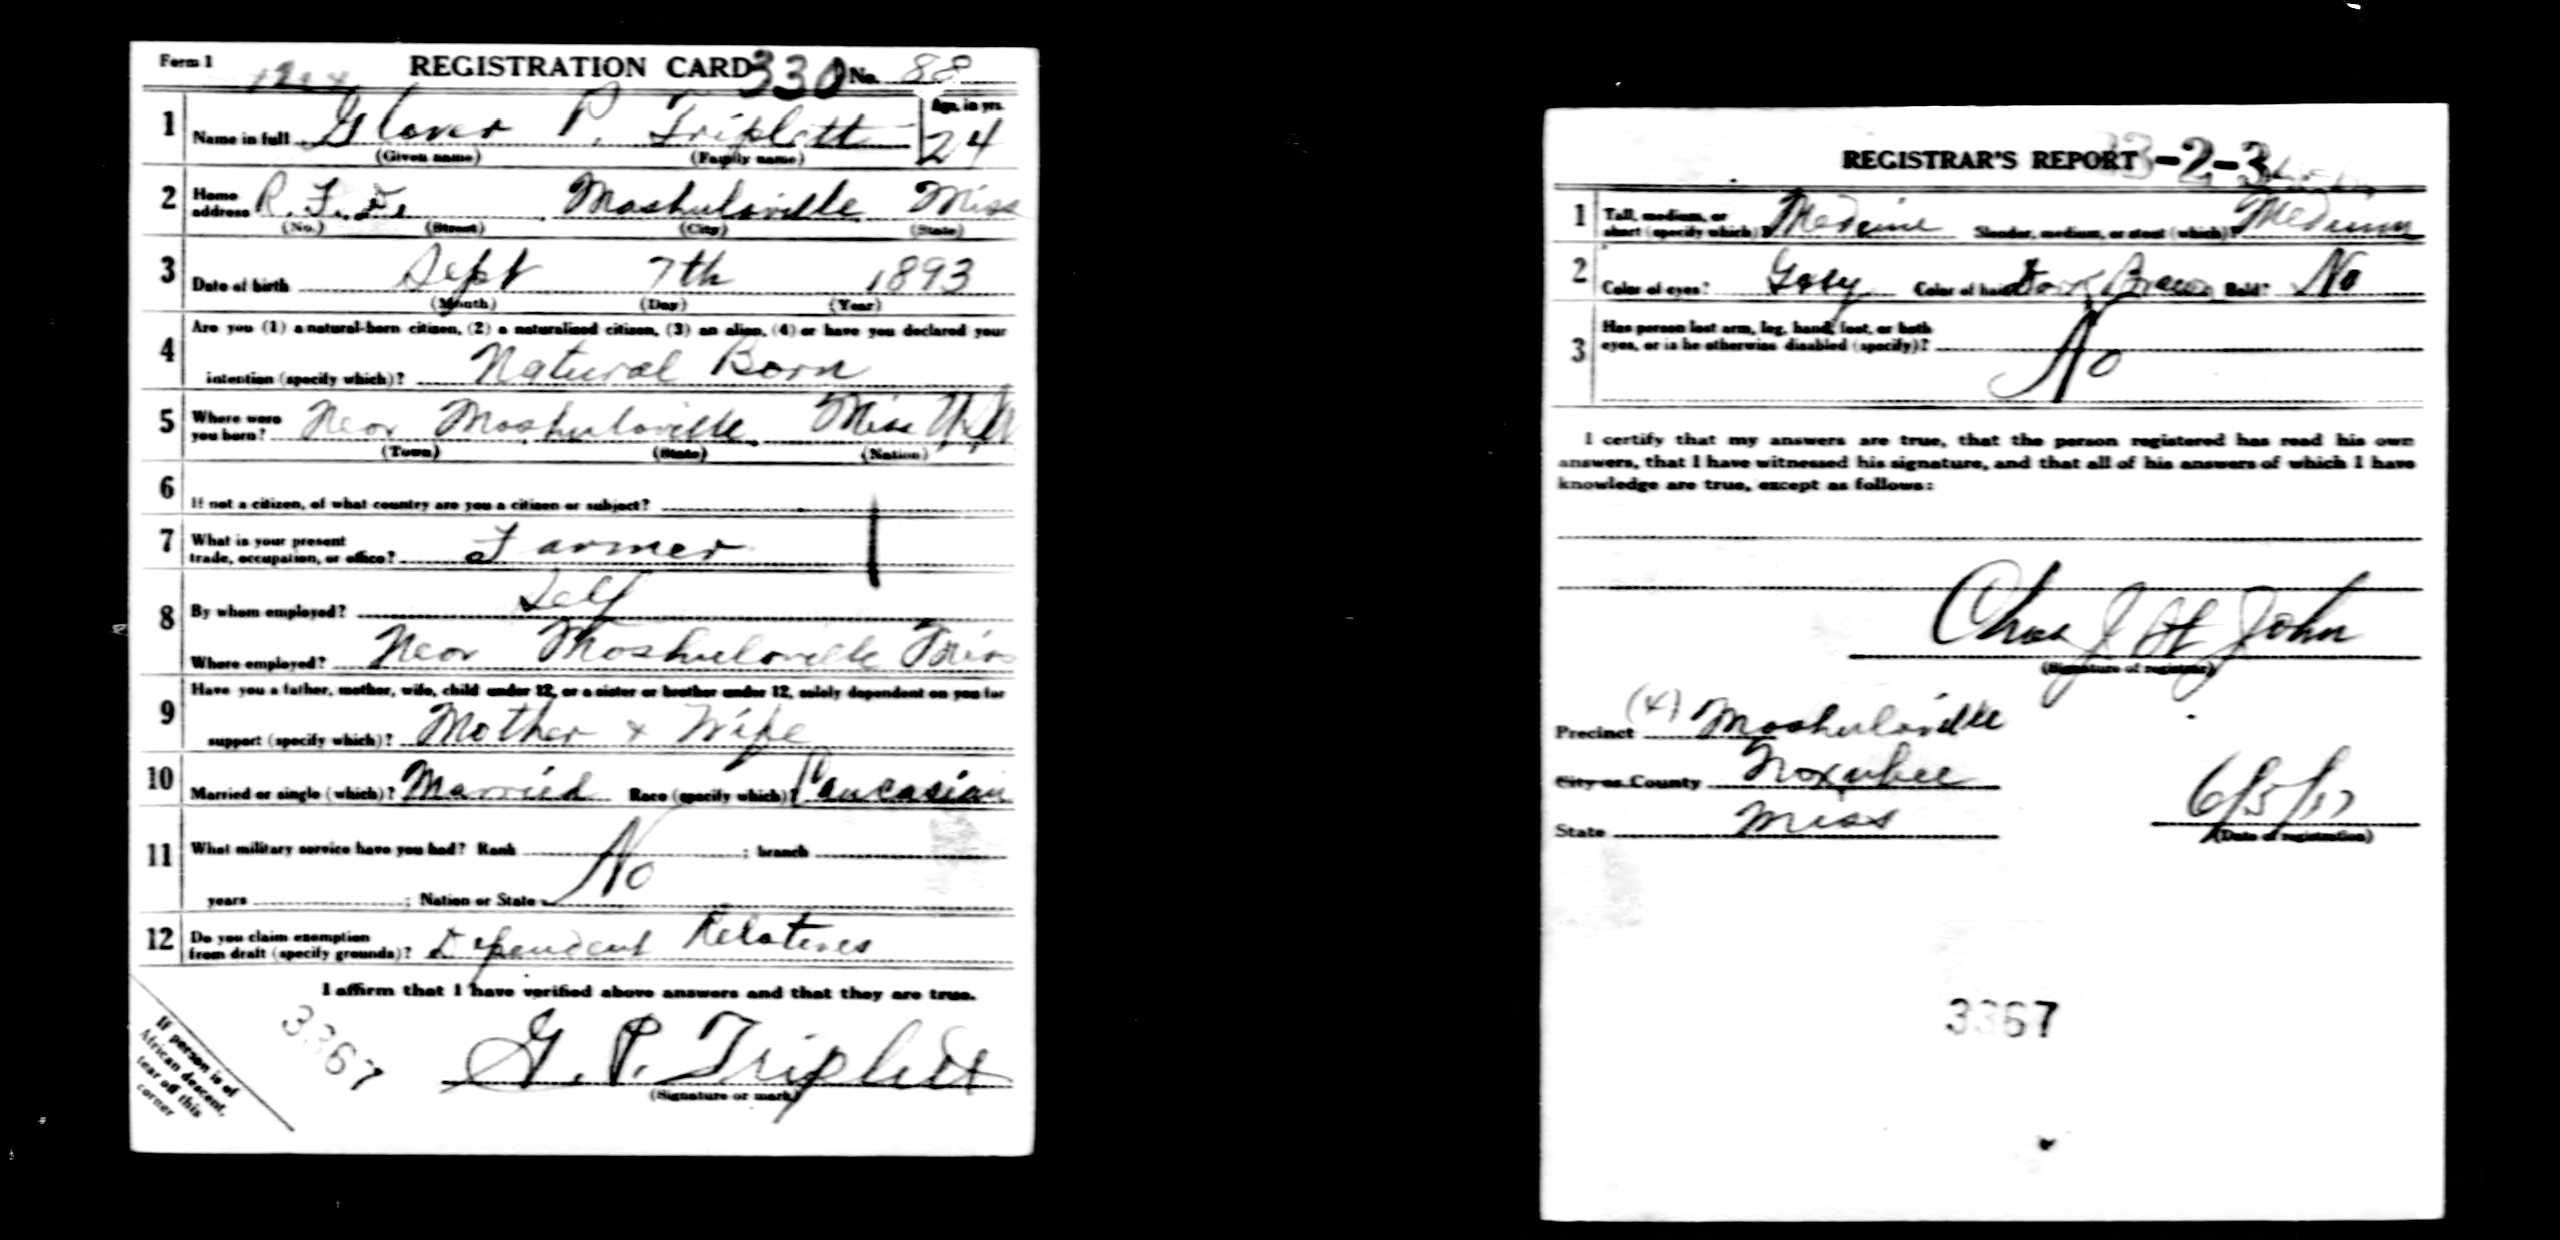 Form 1
REGISTRATION CARD 330 No. 88
1 Name in full Glover P. Triplett Age, in yrs. 24
(Given name) (Family name)
2 Home address R. F. D. Mashulaville Miss
(No.) (Street) (City) (State)
3 Date of birth Sept 7th 1893
(Month) (Day) (Year)
Are you (1) a natural-born citizen, (2) a naturalized citizen, (3) an alien, (4) or have you declared your
4 intention (specify which)? Natural Born
5 Where were you born? Near Mashulaville Miss
(Town) (State) (Nation)
6 If not a citizen, of what country are you a citizen or subject?
7 What is your present
trade, occupation, or office? Farmer
8 By whom employed? Self
Where employed? Near Mashulaville Miss
9 Have you a father, mother, wife, child under 12, or a sister or brother under 12, solely dependent on you for
support (specify which)? Mother & Wife
10 Married or single (which)? Married Race (specify which)? Caucasian
11 What military service have you had? Rank ; branch
years ; Nation or State No
12 Do you claim exemption
from draft (specify grounds)? Dependent Relatives
I affirm that I have verified above answers and that they are true.
G. P. Triplett
(Signature or mark)
If person is of
African descent,
tear off this
corner
3367
REGISTRAR'S REPORT 33-2-3
1 Tall, medium, or
short (specify which)? Medium Slender, medium, or stout (which)? Medium
2 Color of eyes? Gray Color of hair? Dark Brown Bald? No
3 Has person lost arm, leg, hand, foot, or both
eyes, or is he otherwise disabled (specify)? No
I certify that my answers are true, that the person registered has read his own
answers, that I have witnessed his signature, and that all of his answers of which I have
knowledge are true, except as follows:
Chas J St John
(Signature of registrar)
Precinct (4) Mashulaville
City or County Noxubee
State Miss
6/5/17
(Date of registration)
3367